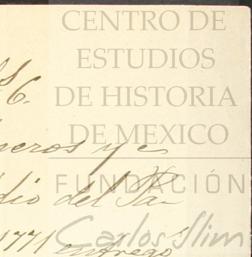 CENTRO DE
ESTUDIOS
DE HISTORIA
DE MEXICO
FUNDACIÓN
Carlos Slim
6.
neros y e
dio del Pa-
1771 entregó